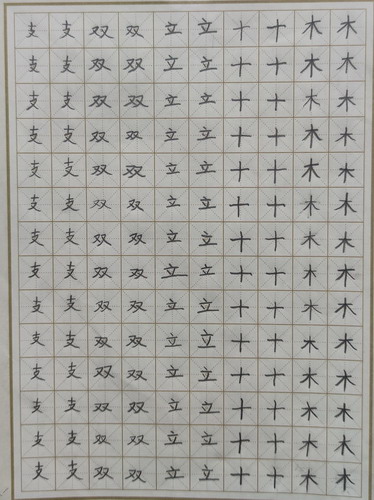 支支双双立立十十木木
支支双双立立十十木木
支支双双立立十十木木
支支双双立立十十木木
支支双双立立十十木木
支支双双立立十十木木
支支双双立立十十木木
支支双双立立十十木木
支支双双立立十十木木
支支双双立立十十木木
支支双双立立十十木木
支支双双立立十十木木
支支双双立立十十木木
支支双双立立十十木木